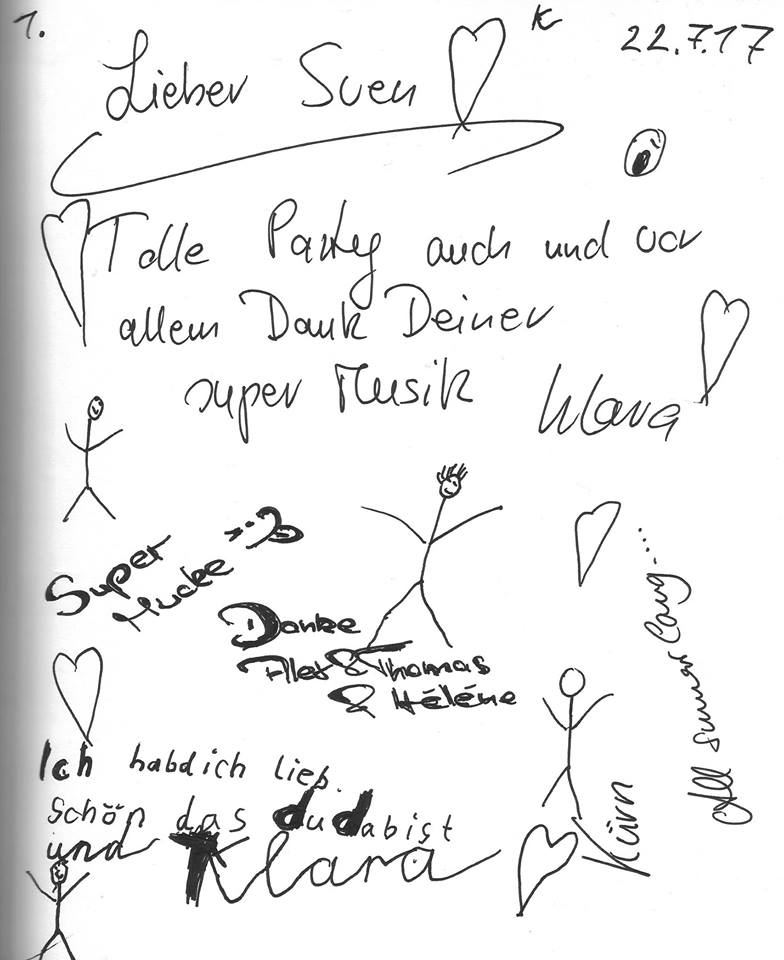 1.
K
22.7.17
Lieber Sven
Tolle Party auch und vor
allem Dank Deiner
super Musik
Klara
Super
Mucke
Danke
Alex & Thomas
& Héléne
All summer long...
Ich habdich lieb.
schön das du dabist
und Klara